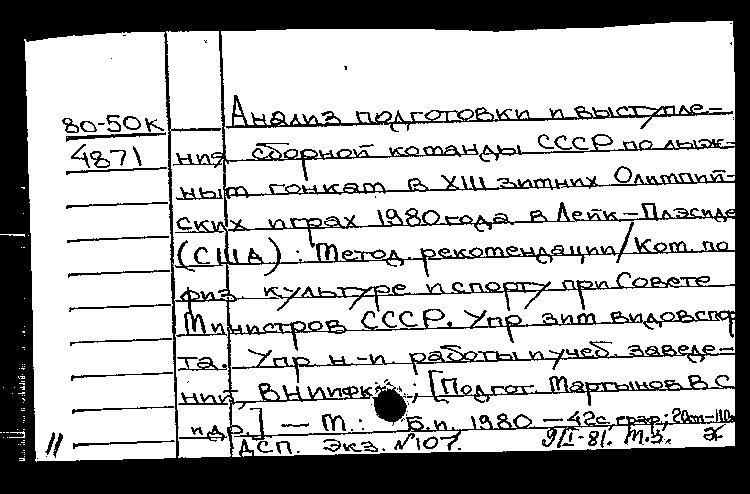 80-50К
4871
Анализ подготовки и выступле=
ния сборной команды СССР по лыж=
ным гонкам в XIII зимних Олимпий-
ских играх 1980 года в Лейк-Плэсиде
(США): Метод. рекомендации/Ком. по
физ культуре и спорту при Совете
Министров СССР. Упр зим видов спор
та. Упр н.-и. работы и учеб. заведе-
ний, ВНИИФК; [Подгот. Мартынов В.С.
и др.] — М.: Б.и. 1980 — 42с, граф; 20см —
ДСП. Экз. №107. 9/I-81. М.З.
11